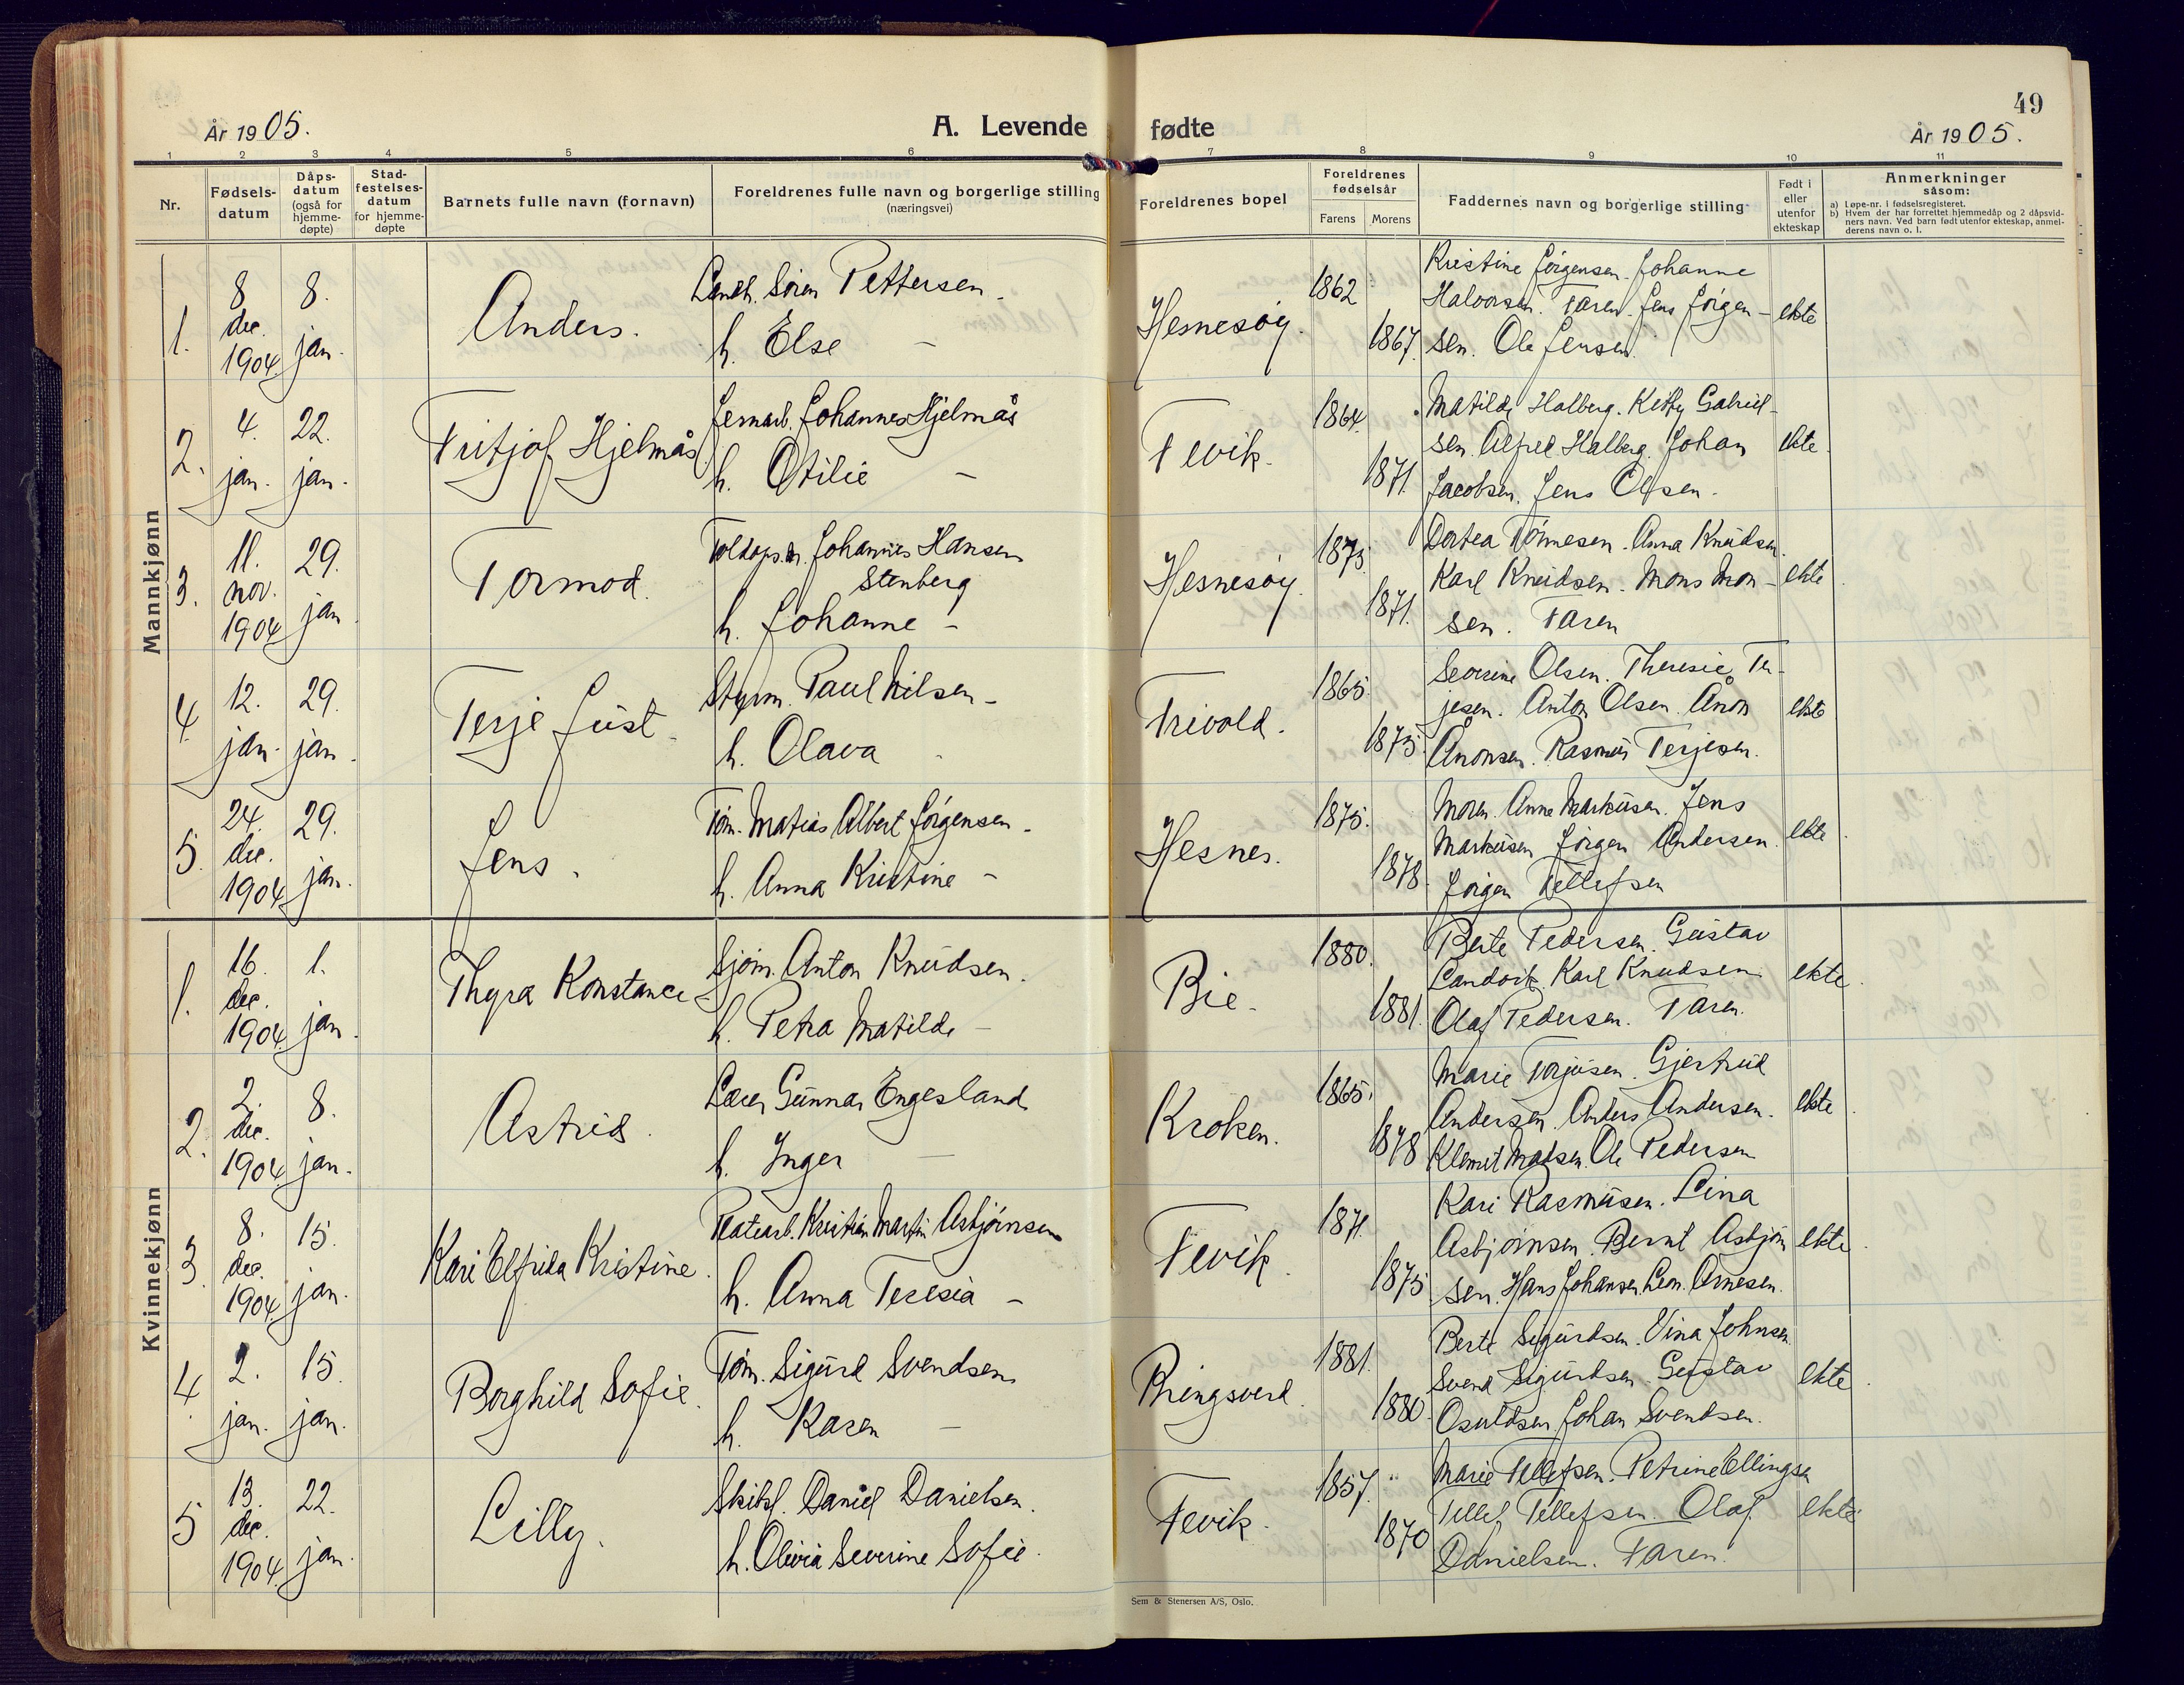 49
År 1905.
A. Levende fødte
År 1905.
1 2 3 4 5 6 7 8 9 10 11
Nr.
Fødsels-
datum
Dåps-
datum
(også for
hjemme-
døpte)
Stad-
festelses-
datum
for hjemme-
døpte
Barnets fulle navn (fornavn)
Foreldrenes fulle navn og borgerlige stilling
(næringsvei)
Foreldrenes bopel
Foreldrenes
fødselsår
Farens
Morens
Faddernes navn og borgerlige stilling
Født i
eller
utenfor
ekteskap
Anmerkninger
såsom:
a) Løpe-nr. i fødselsregisteret.
b) Hvem der har forrettet hjemmedåp og 2 dåpsvid-
ners navn. Ved barn født utenfor ekteskap, anmel-
derens navn o. l.
Mannkjønn
1.
8.
dec.
1904
8.
jan.
Anders.
Søren Pettersen -
h. Else -
Hesnesøy.
1862
1867.
Kristine Jørgensen. Johanne
Halvorsen. Faren. Jens Jörgen-
sen. Ole Jensen.
ekte
2.
4.
jan.
22.
jan.
Fritjof Hjelmås
Jernarb. Johannes Hjelmås
h. Otilie -
Fevik.
1864.
1871.
Matilde Halberg. Ketty Gabriel-
sen. Alfred Halberg. Johan
Jacobsen. Jens Olsen.
ekte.
3.
11.
nov.
1904
29.
jan.
Tormod.
Toldops.m. Johannes Hansen
Stenberg
h. Johanne -
Hesnesøy.
1873.
1871.
Dortea Tönnesen. Anna Knudsen.
Karl Knudsen. Mons Mon-
sen. Faren
ekte
4.
12.
jan.
29.
jan.
Terje Just.
Styrm. Paul Nilsen -
h. Olava
Trivold.
1865.
1875.
Severine Olsen. Theresie Ter-
jesen. Anton Olsen. Anon
Anonsen. Rasmus Terjesen.
ekte
5.
24.
dec.
1904
29.
jan.
Jens.
Töm. Matias Albert Jörgensen -
h. Anna Kristine -
Hesnes.
1875.
1878.
Moren. Anne Markusen. Jens
Markusen Jörgen Andersen.
Jörgen Tellefsen
ekte.
Kvinnekjønn
1.
16.
dec.
1904
1.
jan.
Thyra Konstance
Sjöm. Anton Knudsen.
h. Petra Matilde -
Bie.
1880.
1881.
Berte Pedersen. Gustav
Landvik. Karl Knudsen.
Olaf Pedersen. Faren.
ekte.
2.
2.
dec.
1904
8.
jan.
Astrid.
Lærer Gunnar Engesland
h. Inger -
Kroken.
1865.
1878
Marie Torjusen. Gjertrud
Andersen. Anders Andersen.
Klemet Madsen. Ole Pedersen
ekte.
3.
8.
dec.
1904.
15.
jan.
Kari Elfrida Kristine.
Platearb. Kristian Martin Asbjörnsen
h. Anna Teresia -
Fevik.
1871.
1875
Kari Rasmusen. Lina
Asbjörnsen. Bernt Asbjörn
sen. Hans Johansen. Leon. Arnesen.
ekte.
4.
2.
jan.
15.
jan.
Borghild Sofie.
Töm. Sigurd Svendsen
h. Karen -
Bringsverd.
1881.
1880.
Berte Sigurdsen. Vina Johnsen
Svend Sigurdsen. Gustav
Osuldsen. Johan Svendsen.
ekte.
5
13.
dec.
1904.
22.
jan.
Lilly.
Daniel Danielsen.
h. Olivia Severine Sofie.
Fevik.
1857.
1870
Marie Tellefsen. Petrine Ellingsen
Tellef Tellefsen. Olaf
Danielsen. Faren.
ekte
Sem & Stenersen A/S, Oslo.